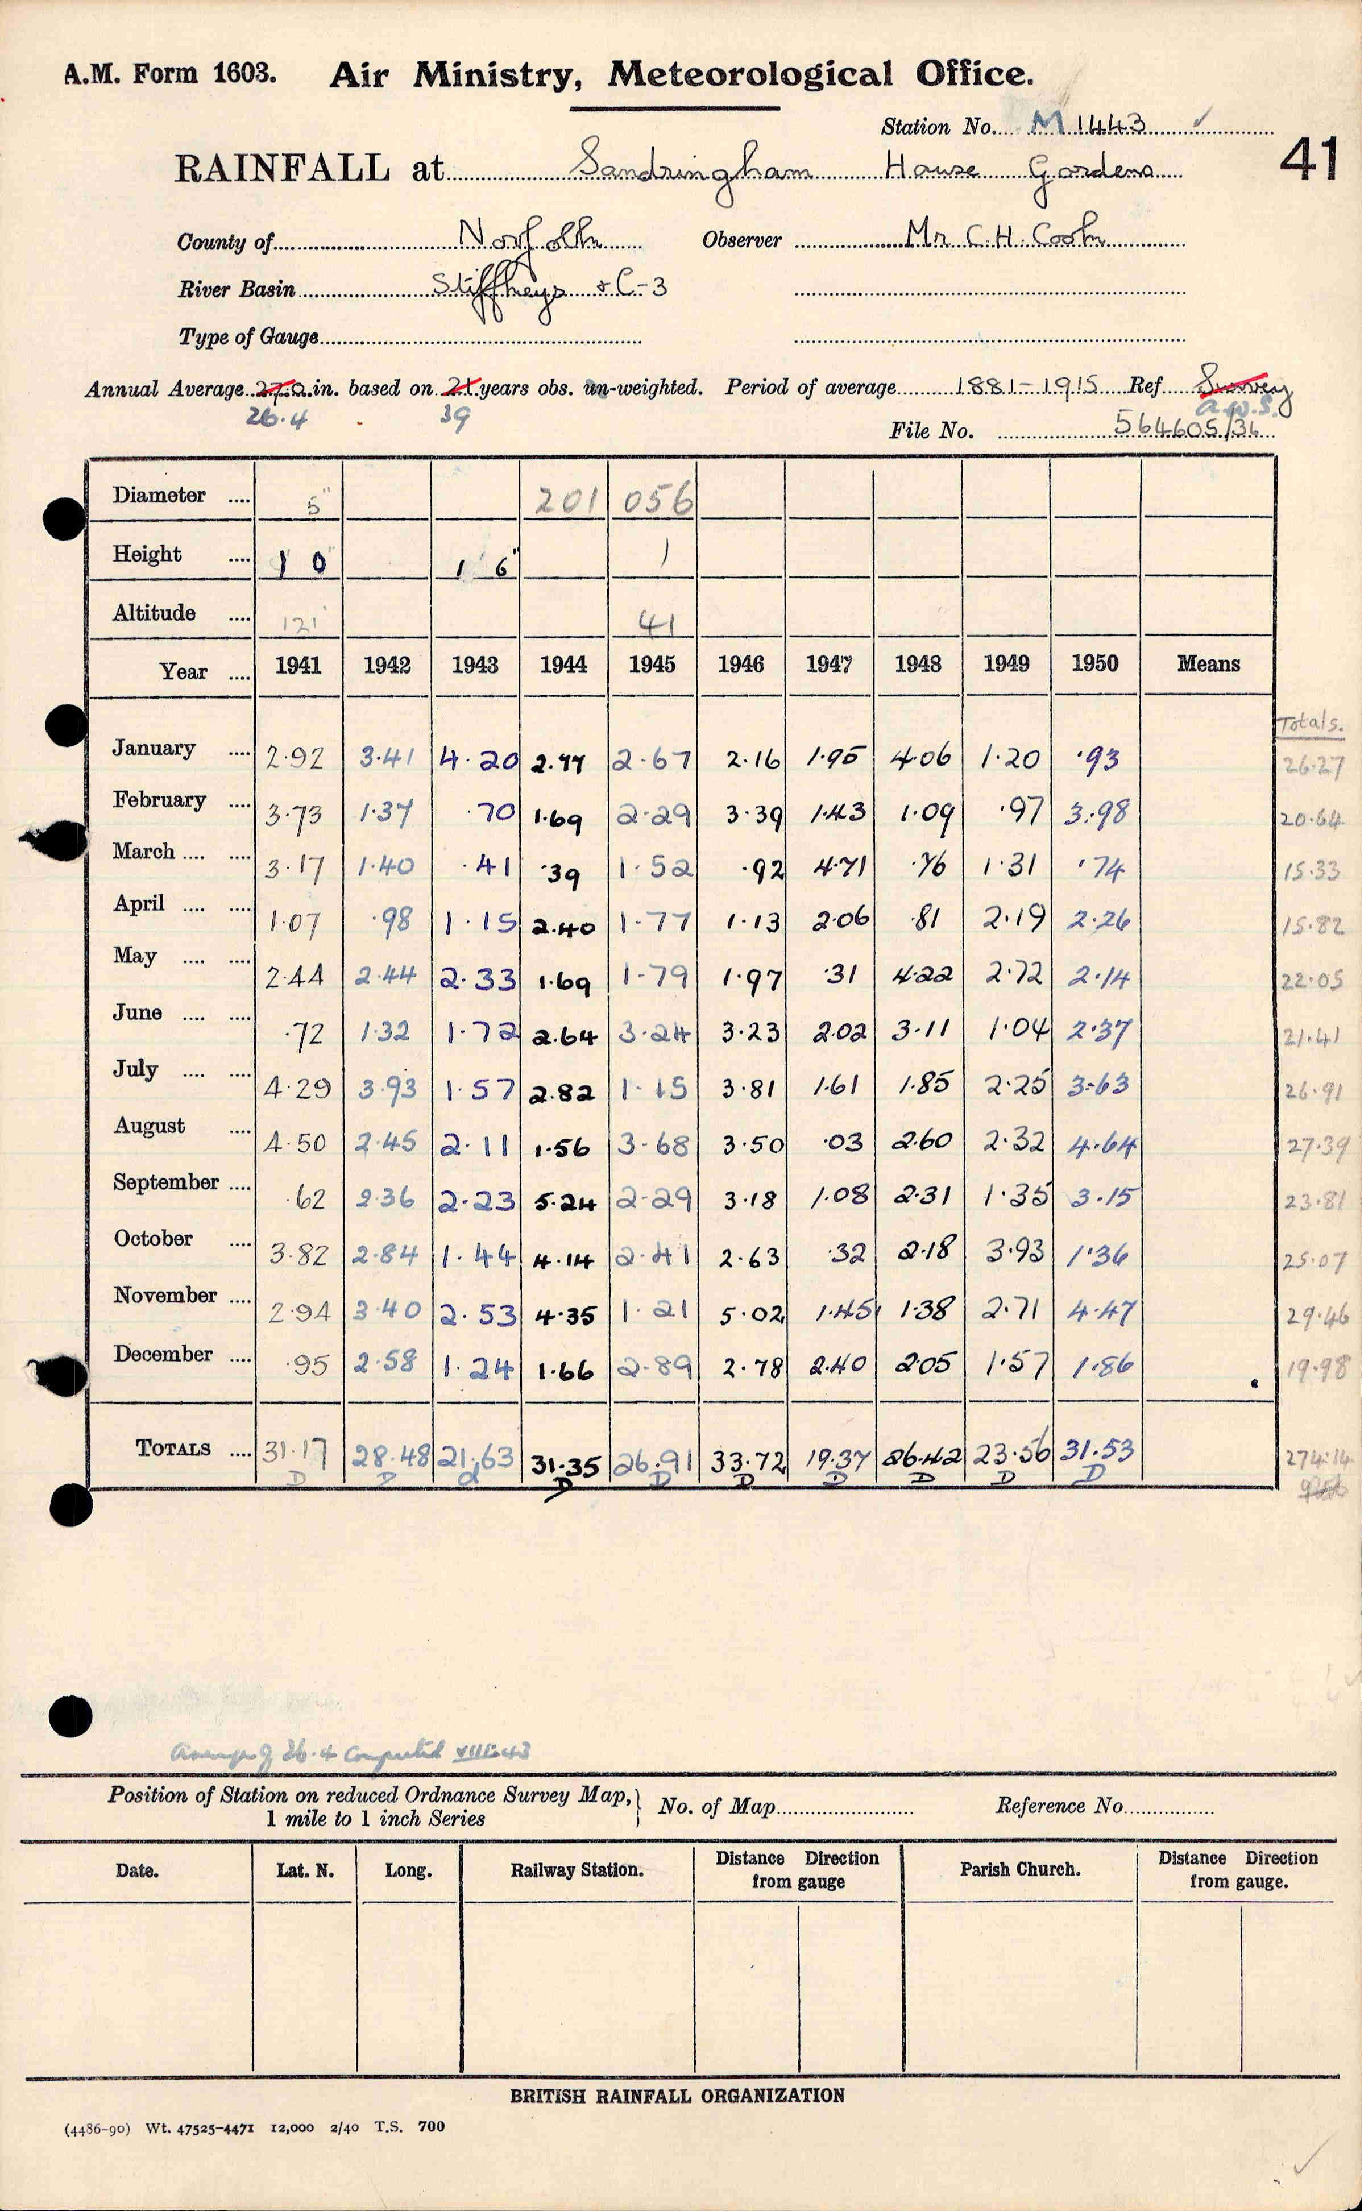 A.M. Form 1603. Air Ministry, Meteorological Office.
Station No. M 1443 ✓
RAINFALL at Sandringham House Gardens 41
County of Norfolk Observer Mr C.H. Cook
River Basin Stiffkeys + C-3
Type of Gauge
Annual Average 27.0 in. based on 21 years obs. un-weighted. Period of average 1881-1915 Ref Survey
26.4 39 a.w.s.
File No. 564605/36
Diameter 5" 201 056
Height 1 0" 1 6" 1
Altitude 121' 41
Year 1941 1942 1943 1944 1945 1946 1947 1948 1949 1950 Means
Totals.
January 2.92 3.41 4.20 2.77 2.67 2.16 1.95 4.06 1.20 .93 26.27
February 3.73 1.37 .70 1.69 2.29 3.39 1.43 1.09 .97 3.98 20.64
March 3.17 1.40 .41 .39 1.52 .92 4.71 .76 1.31 .74 15.33
April 1.07 .98 1.15 2.40 1.77 1.13 2.06 .81 2.19 2.26 15.82
May 2.44 2.44 2.33 1.69 1.79 1.97 .31 4.22 2.72 2.14 22.05
June .72 1.32 1.72 2.64 3.24 3.23 2.02 3.11 1.04 2.37 21.41
July 4.29 3.93 1.57 2.82 1.15 3.81 1.61 1.85 2.25 3.63 26.91
August 4.50 2.45 2.11 1.56 3.68 3.50 .03 2.60 2.32 4.64 27.39
September .62 2.36 2.23 5.24 2.29 3.18 1.08 2.31 1.35 3.15 23.81
October 3.82 2.84 1.44 4.14 2.41 2.63 .32 2.18 3.93 1.36 25.07
November 2.94 3.40 2.53 4.35 1.21 5.02 1.45 1.38 2.71 4.47 29.46
December .95 2.58 1.24 1.66 2.89 2.78 2.40 2.05 1.57 1.86 19.98
TOTALS 31.17 28.48 21.63 31.35 26.91 33.72 19.37 26.42 23.56 31.53 274.14
D D d D D D D D D D
Average of 26.4 Computed VIII.43
Position of Station on reduced Ordnance Survey Map, No. of Map Reference No.
1 mile to 1 inch Series
Date. Lat. N. Long. Railway Station. Distance Direction from gauge Parish Church. Distance Direction from gauge.
BRITISH RAINFALL ORGANIZATION
(4486-90) Wt. 47525-4471 12,000 2/40 T.S. 700